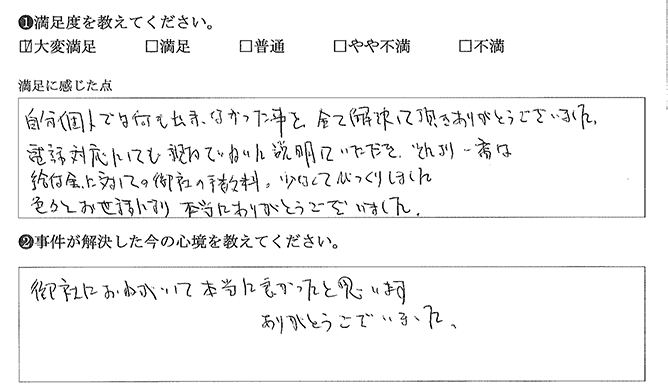 ❶満足度を教えてください。
☑大変満足 □満足 □普通 □やや不満 □不満
満足に感じた点
自分個人では何も出来なかった事を、全て解決して頂きありがとうございました。
電話対応にしても 説明していただき、 一番は
給付金に対しての御社の手数料。少なくてびっくりしました
色々とお世話になり 本当にありがとうございました。
❷事件が解決した今の心境を教えてください。
御社におねがいして本当に良かったと思います
ありがとうございました。